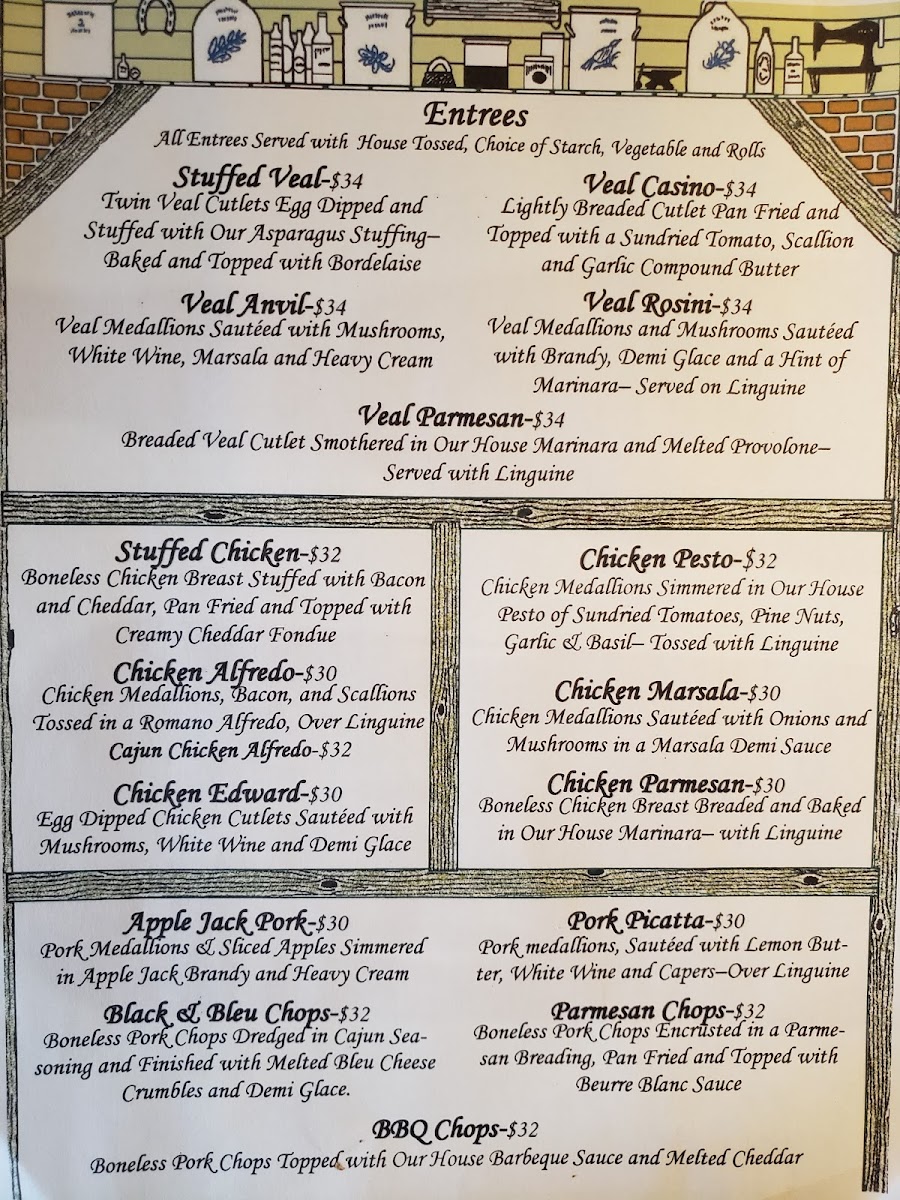 Entrees
All Entrees Served with House Tossed, Choice of Starch, Vegetable and Rolls
Stuffed Veal-$34
Twin Veal Cutlets Egg Dipped and
Stuffed with Our Asparagus Stuffing–
Baked and Topped with Bordelaise
Veal Casino-$34
Lightly Breaded Cutlet Pan Fried and
Topped with a Sundried Tomato, Scallion
and Garlic Compound Butter
Veal Anvil-$34
Veal Medallions Sautéed with Mushrooms,
White Wine, Marsala and Heavy Cream
Veal Rosini-$34
Veal Medallions and Mushrooms Sautéed
with Brandy, Demi Glace and a Hint of
Marinara– Served on Linguine
Veal Parmesan-$34
Breaded Veal Cutlet Smothered in Our House Marinara and Melted Provolone–
Served with Linguine
Stuffed Chicken-$32
Boneless Chicken Breast Stuffed with Bacon
and Cheddar, Pan Fried and Topped with
Creamy Cheddar Fondue
Chicken Alfredo-$30
Chicken Medallions, Bacon, and Scallions
Tossed in a Romano Alfredo, Over Linguine
Cajun Chicken Alfredo-$32
Chicken Edward-$30
Egg Dipped Chicken Cutlets Sautéed with
Mushrooms, White Wine and Demi Glace
Chicken Pesto-$32
Chicken Medallions Simmered in Our House
Pesto of Sundried Tomatoes, Pine Nuts,
Garlic & Basil– Tossed with Linguine
Chicken Marsala-$30
Chicken Medallions Sautéed with Onions and
Mushrooms in a Marsala Demi Sauce
Chicken Parmesan-$30
Boneless Chicken Breast Breaded and Baked
in Our House Marinara– with Linguine
Apple Jack Pork-$30
Pork Medallions & Sliced Apples Simmered
in Apple Jack Brandy and Heavy Cream
Pork Picatta-$30
Pork medallions, Sautéed with Lemon But-
ter, White Wine and Capers–Over Linguine
Black & Bleu Chops-$32
Boneless Pork Chops Dredged in Cajun Sea-
soning and Finished with Melted Bleu Cheese
Crumbles and Demi Glace.
Parmesan Chops-$32
Boneless Pork Chops Encrusted in a Parme-
san Breading, Pan Fried and Topped with
Beurre Blanc Sauce
BBQ Chops-$32
Boneless Pork Chops Topped with Our House Barbeque Sauce and Melted Cheddar